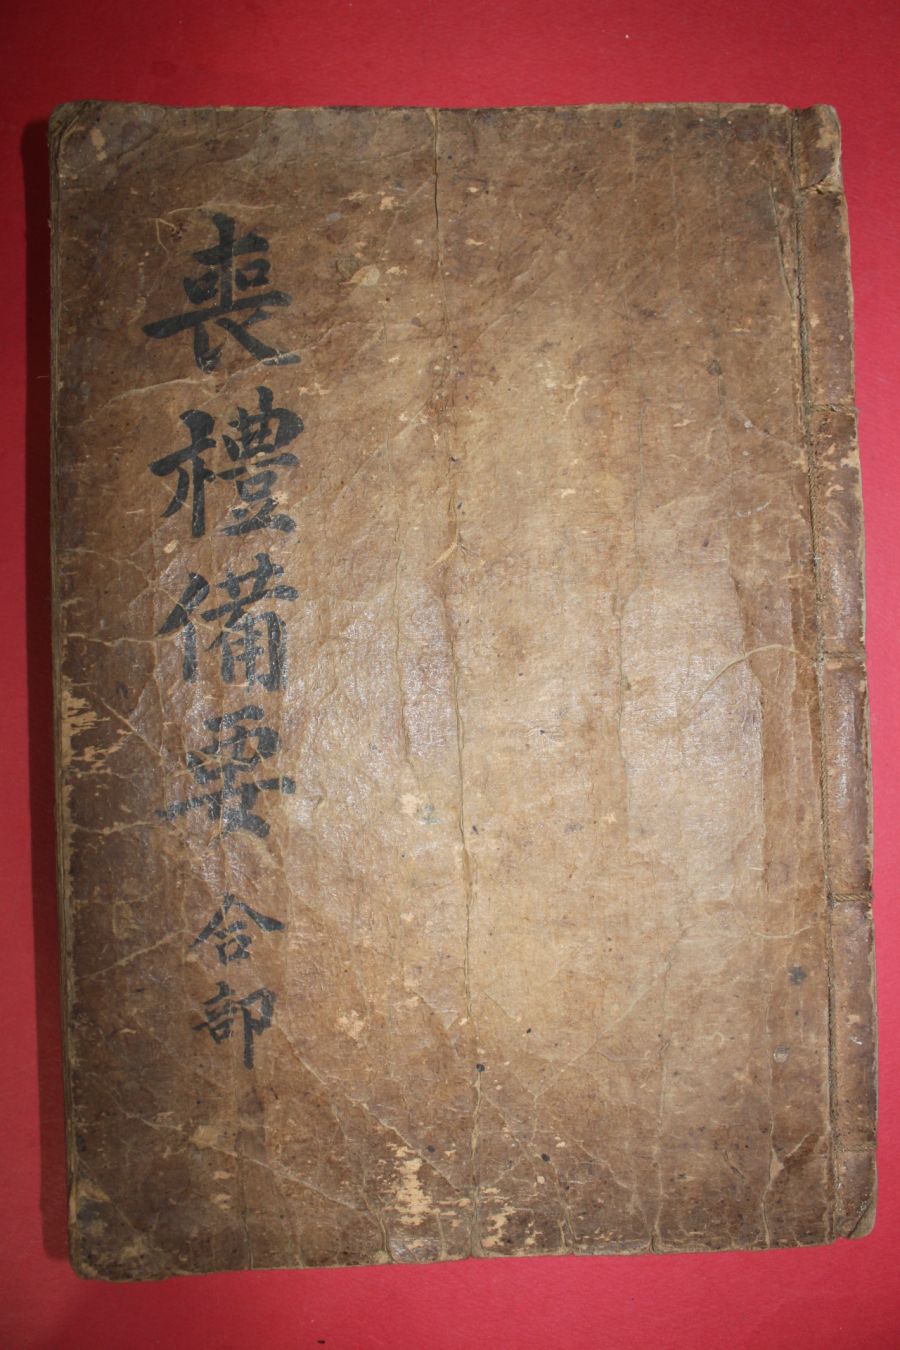 喪禮備要 合部